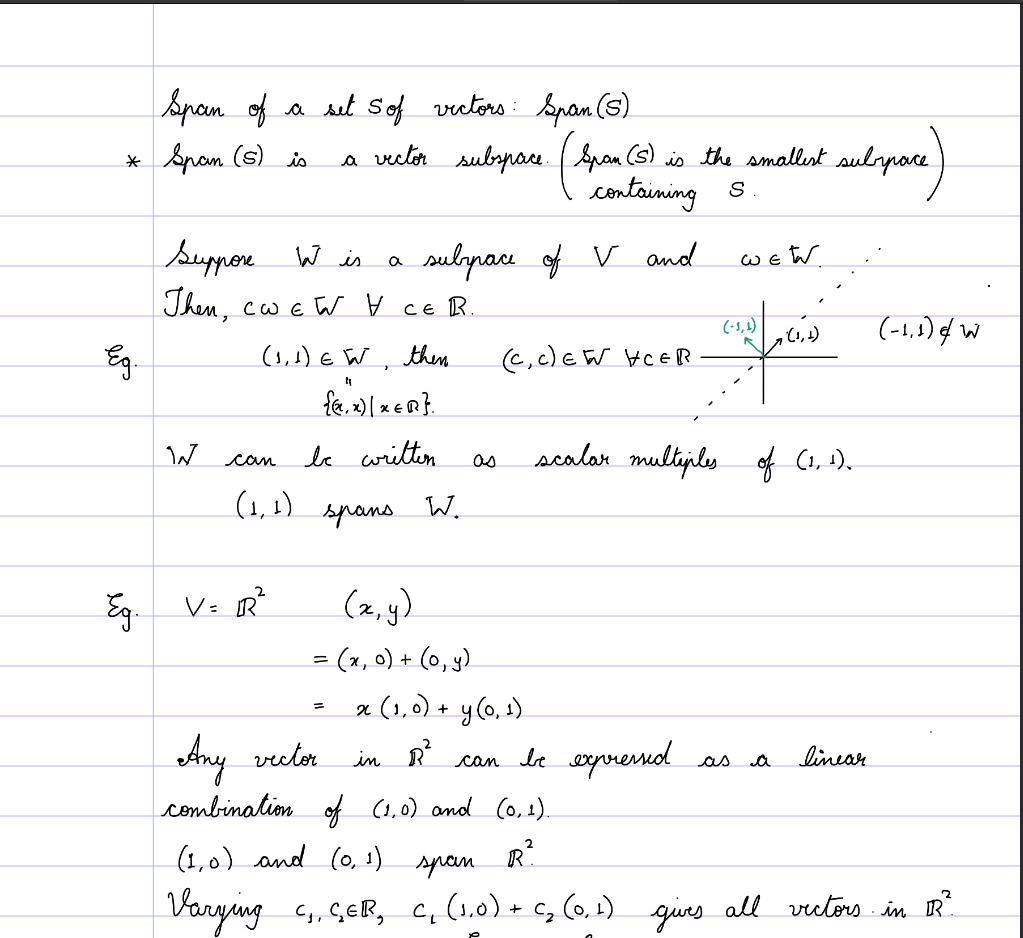 Span of a set S of vectors: Span(S)
* Span (S) is a vector subspace. (Span(S) is the smallest subspace
containing S.)
Suppose W is a subspace of V and w ∈ W.
Then, cw ∈ W ∀ c ∈ ℝ.
Eg. (1,1) ∈ W, then (c,c) ∈ W ∀c ∈ ℝ (-1,1) (1,1) (-1,1) ∉ W
"
{(x,x) | x ∈ ℝ}.
W can be written as scalar multiples of (1,1).
(1,1) spans W.
Eg. V = ℝ² (x,y)
= (x,0) + (0,y)
= x(1,0) + y(0,1)
Any vector in ℝ² can be expressed as a linear
combination of (1,0) and (0,1).
(1,0) and (0,1) span ℝ².
Varying c₁, c₂∈ℝ, c₁(1,0) + c₂(0,1) gives all vectors in ℝ².